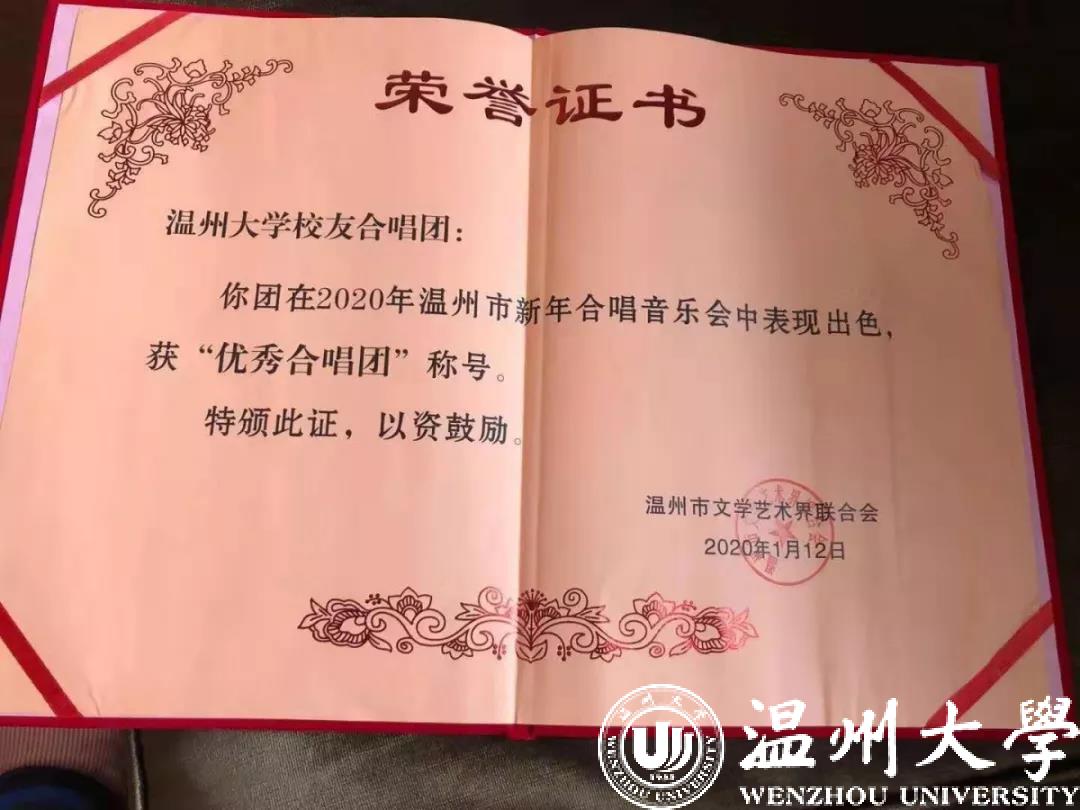 荣誉证书
温州大学校友合唱团：
你团在2020年温州市新年合唱音乐会中表现出色，
获“优秀合唱团”称号。
特颁此证，以资鼓励。
温州市文学艺术界联合会
2020年1月12日
温州大学
1933
WENZHOU UNIVERSITY
温州大學
WENZHOU UNIVERSITY